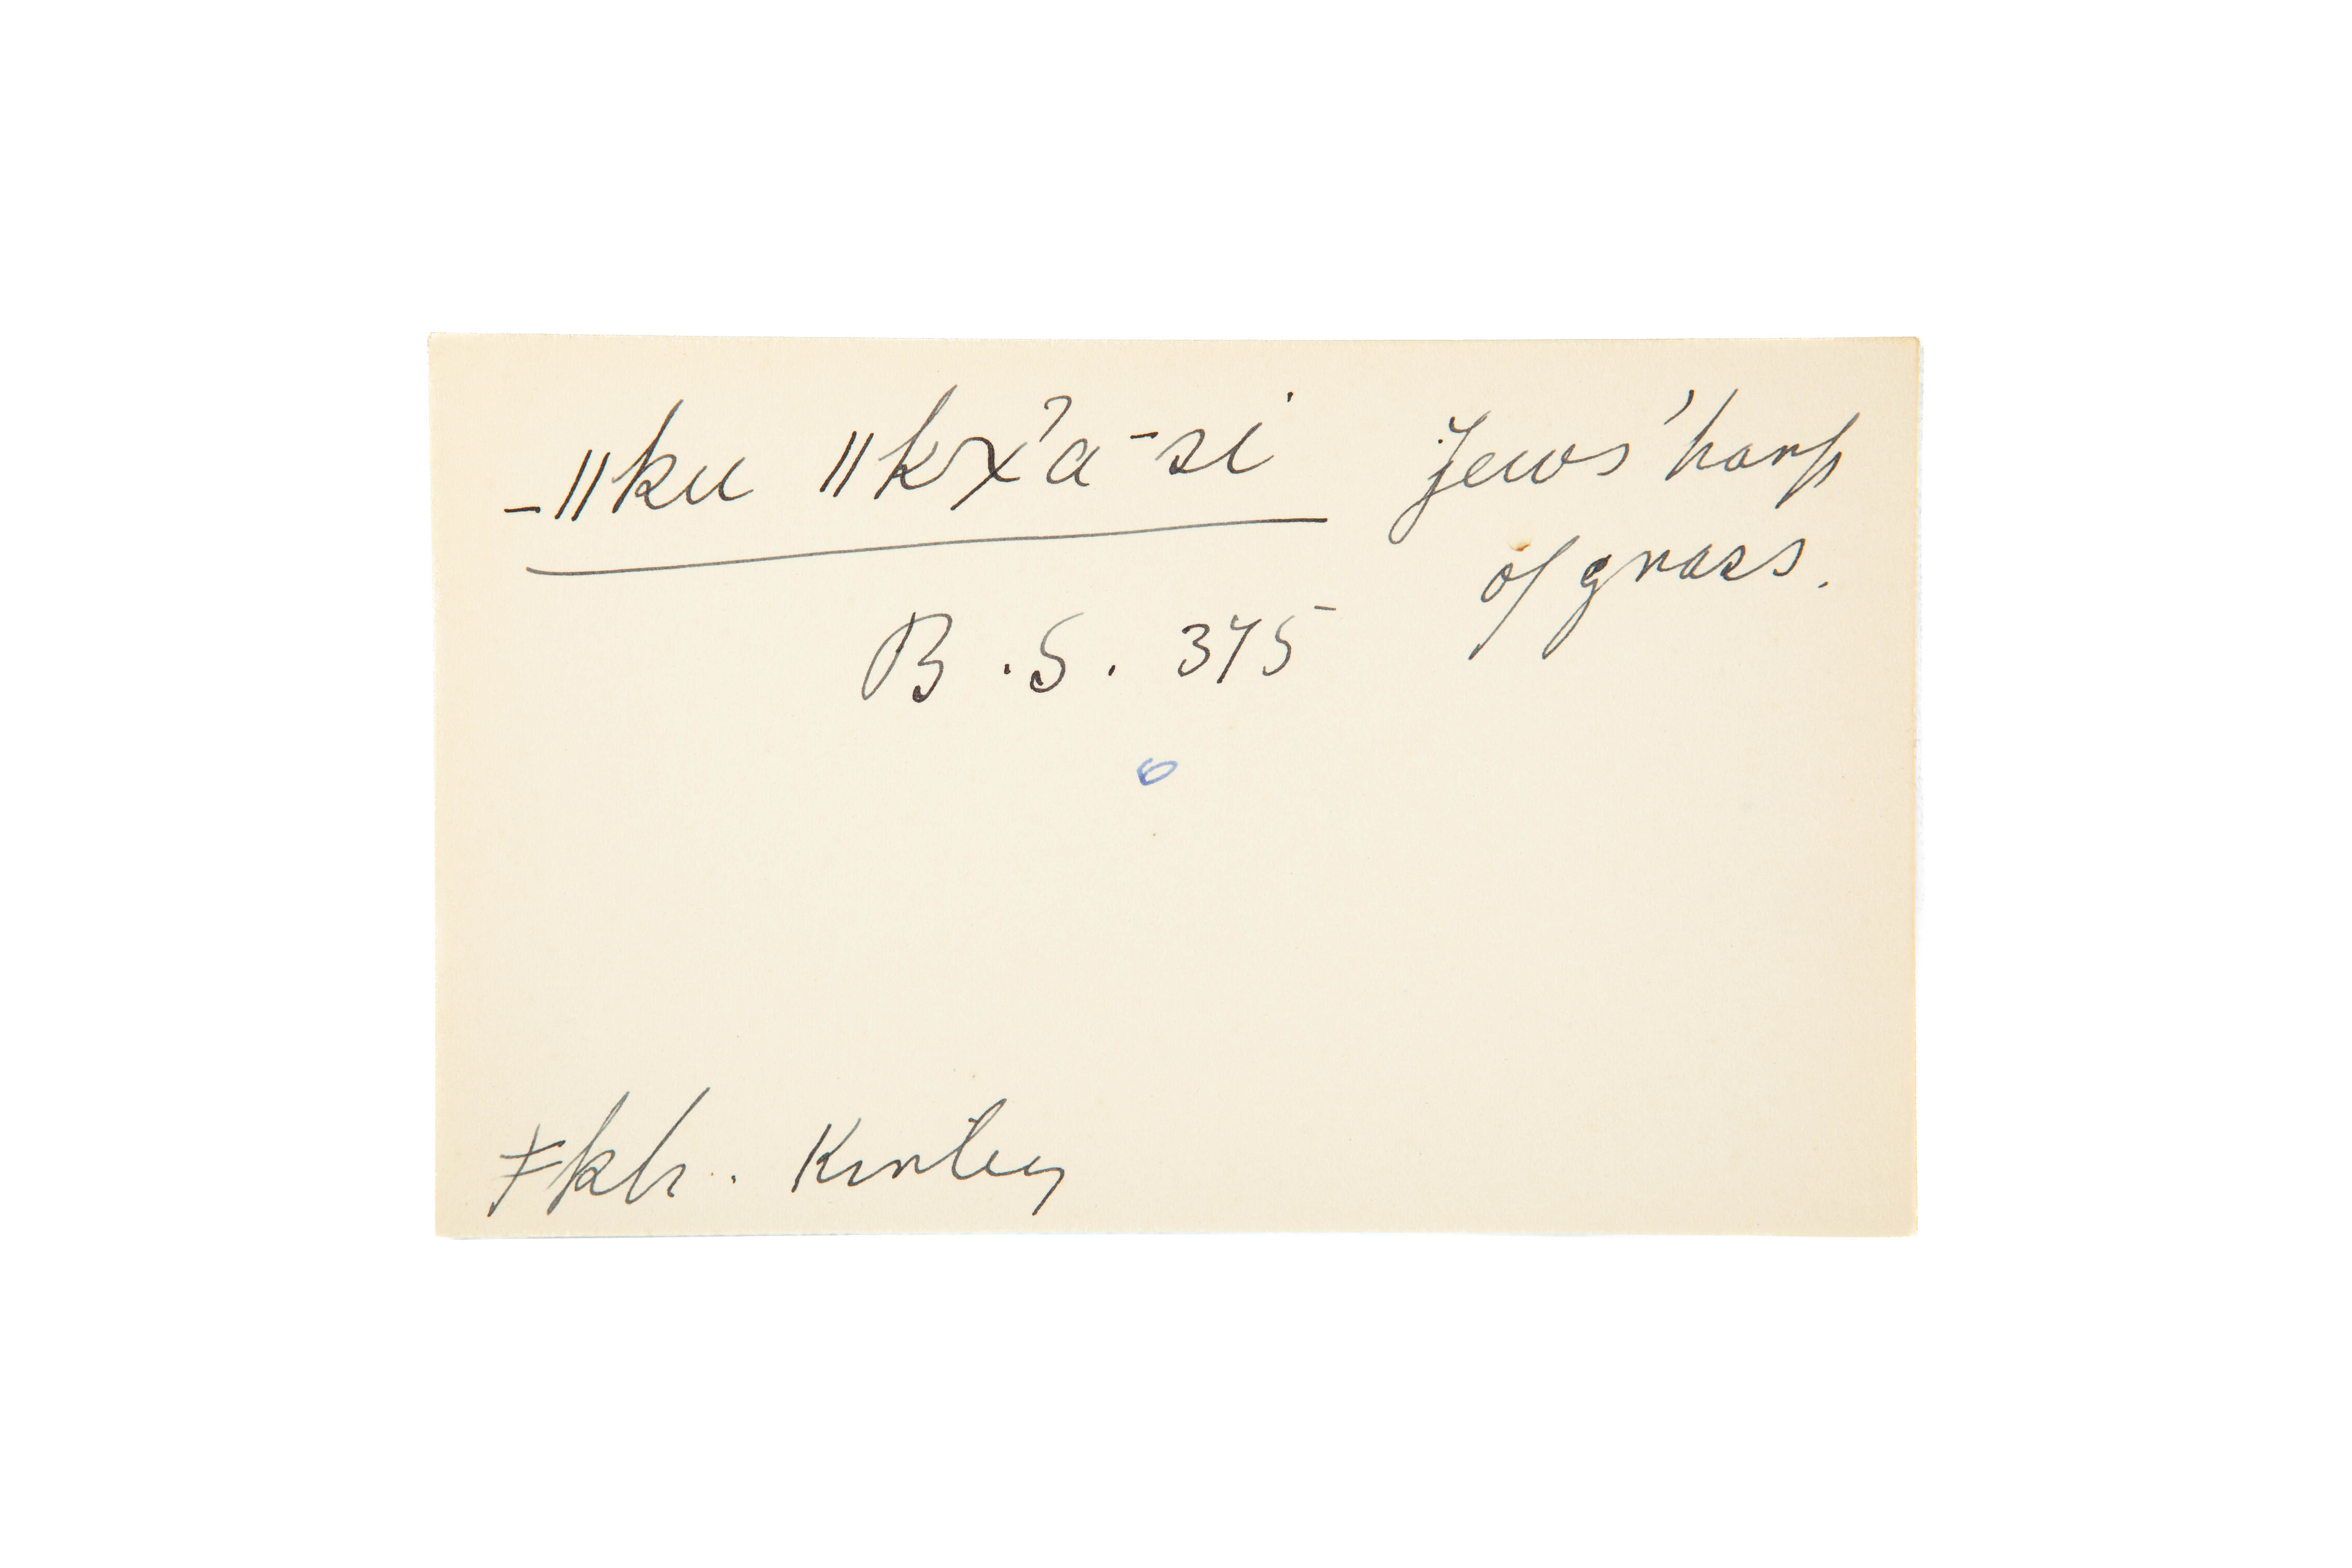 -ǁku ǁkxʼa-si Jews' harp
of grass.
B.S. 375
ǂkh. Kirby